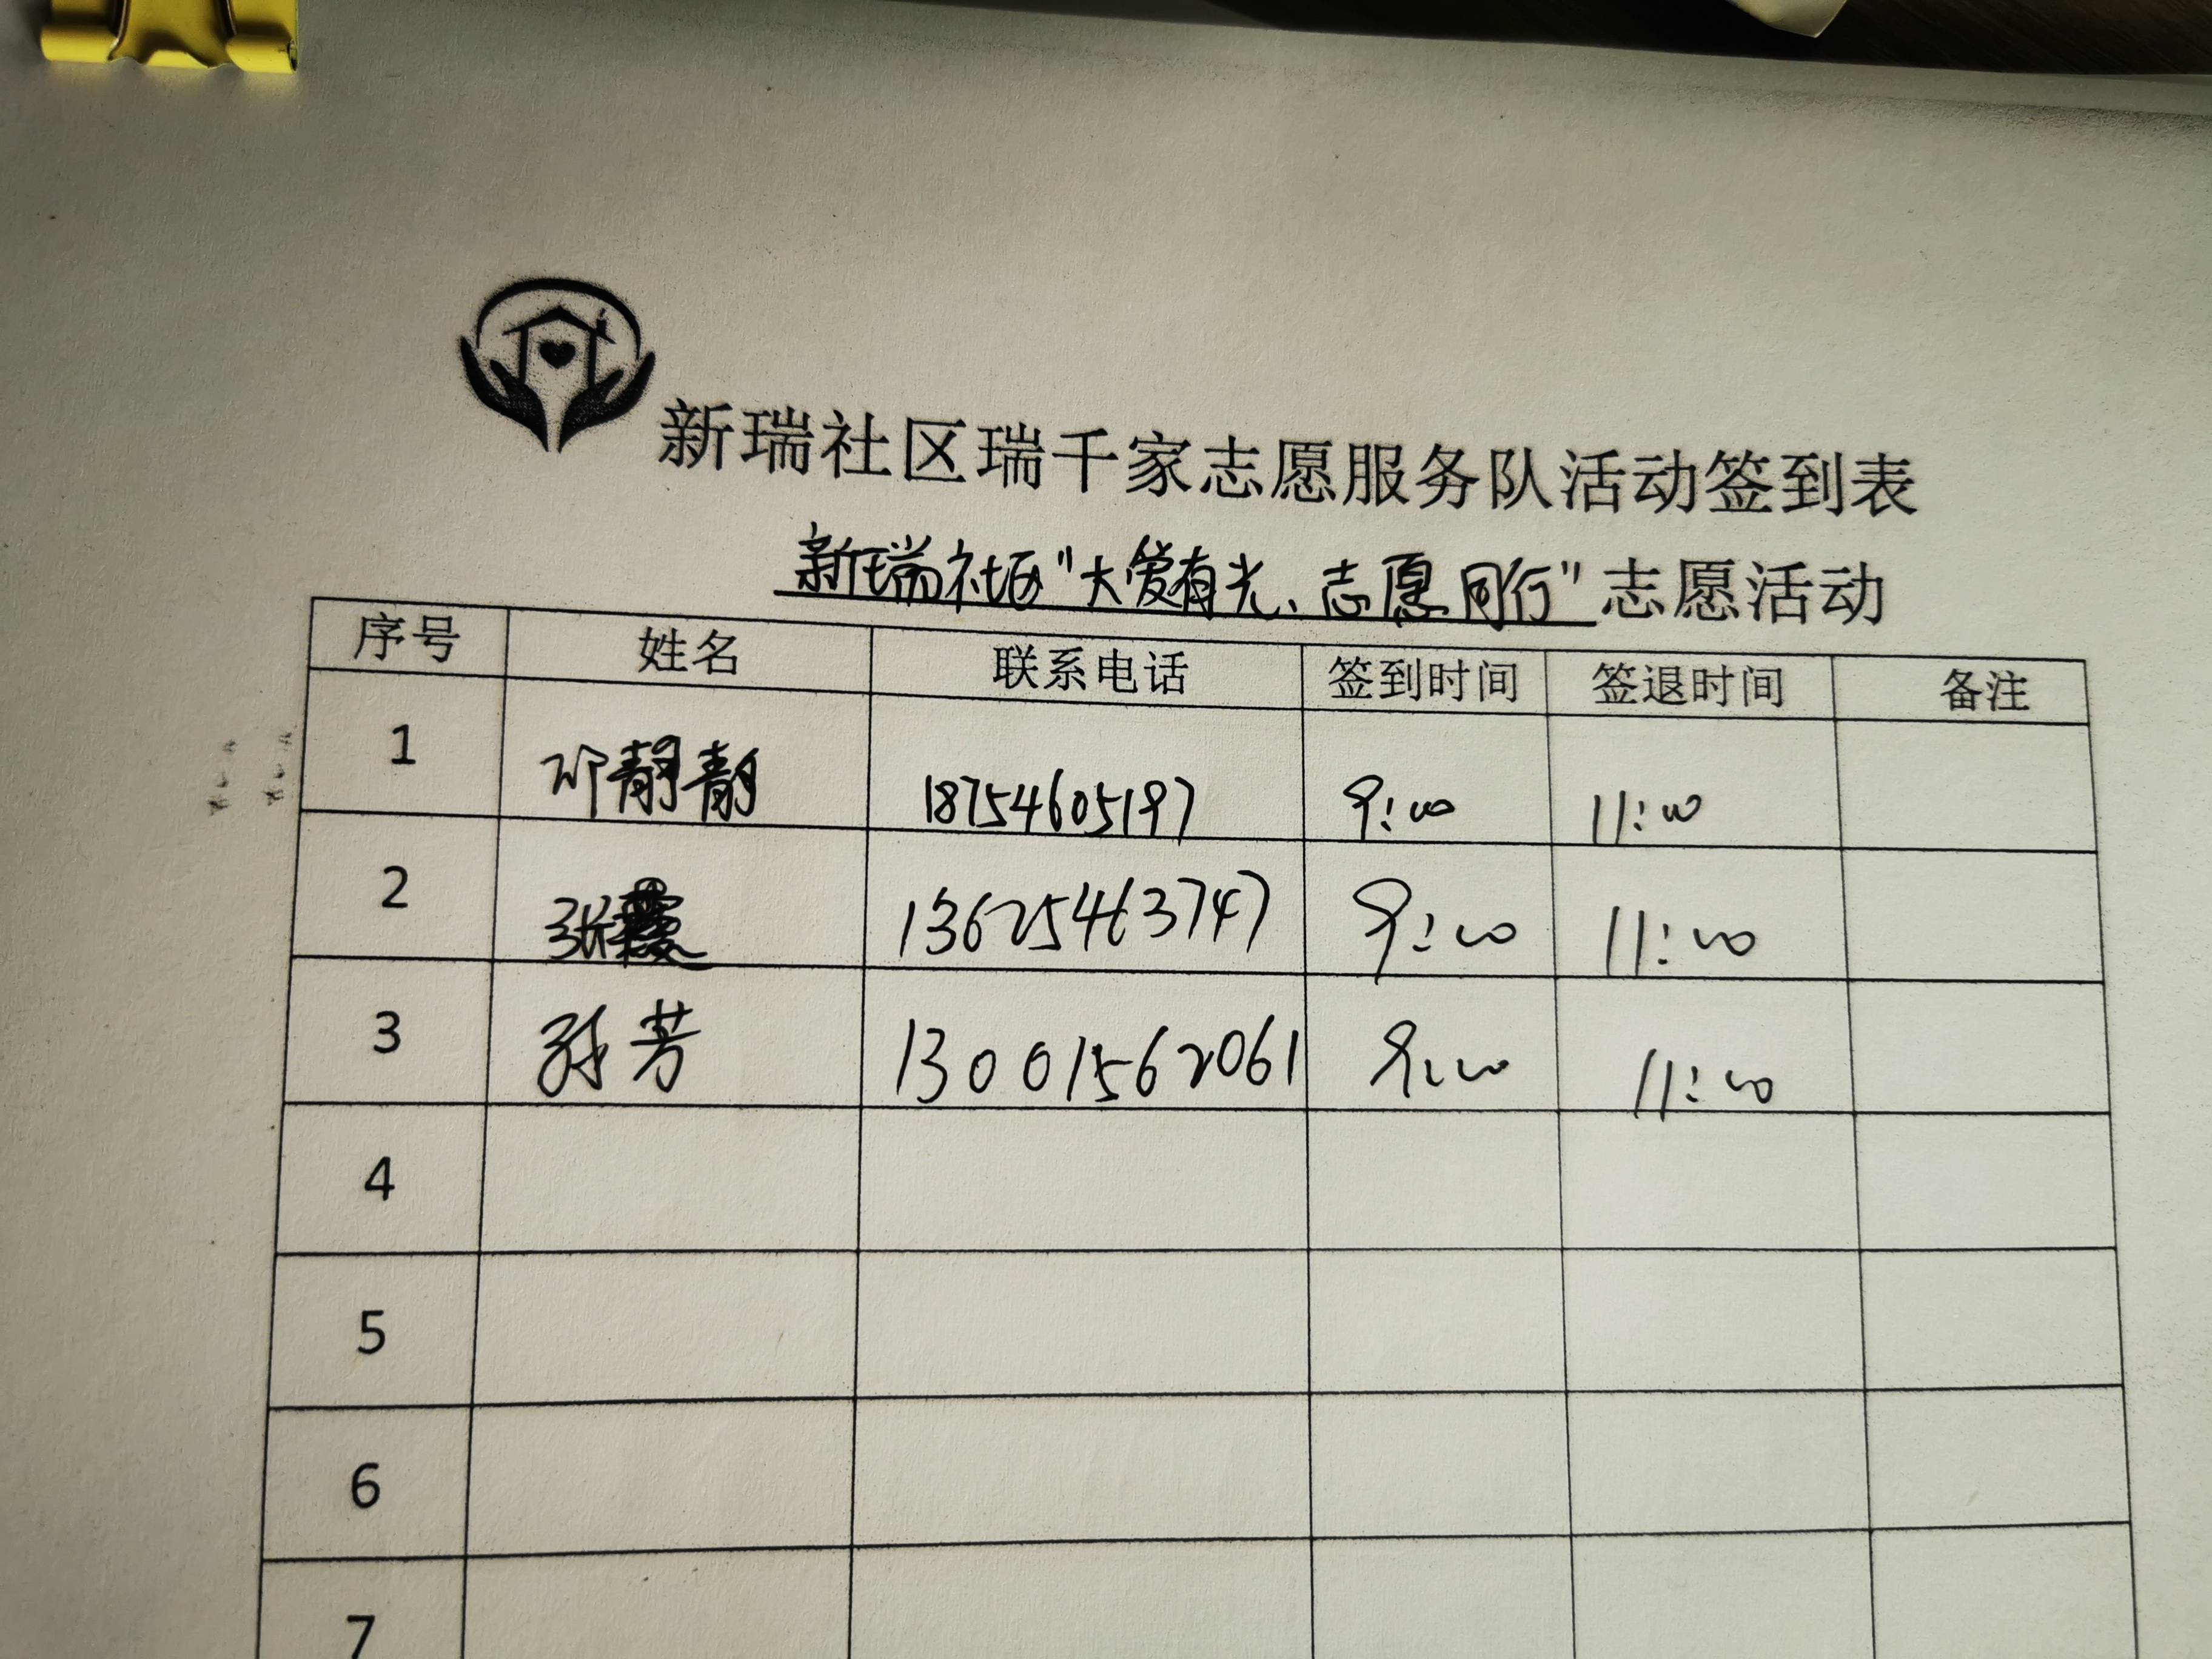 新瑞社区瑞千家志愿服务队活动签到表
新瑞社区"大爱有光、志愿同行"志愿活动
序号 姓名 联系电话 签到时间 签退时间 备注
1 邓静静 18754605197 9:00 11:00
2 张霞 13625463747 9:00 11:00
3 孙芳 13001562061 9:00 11:00
4
5
6
7